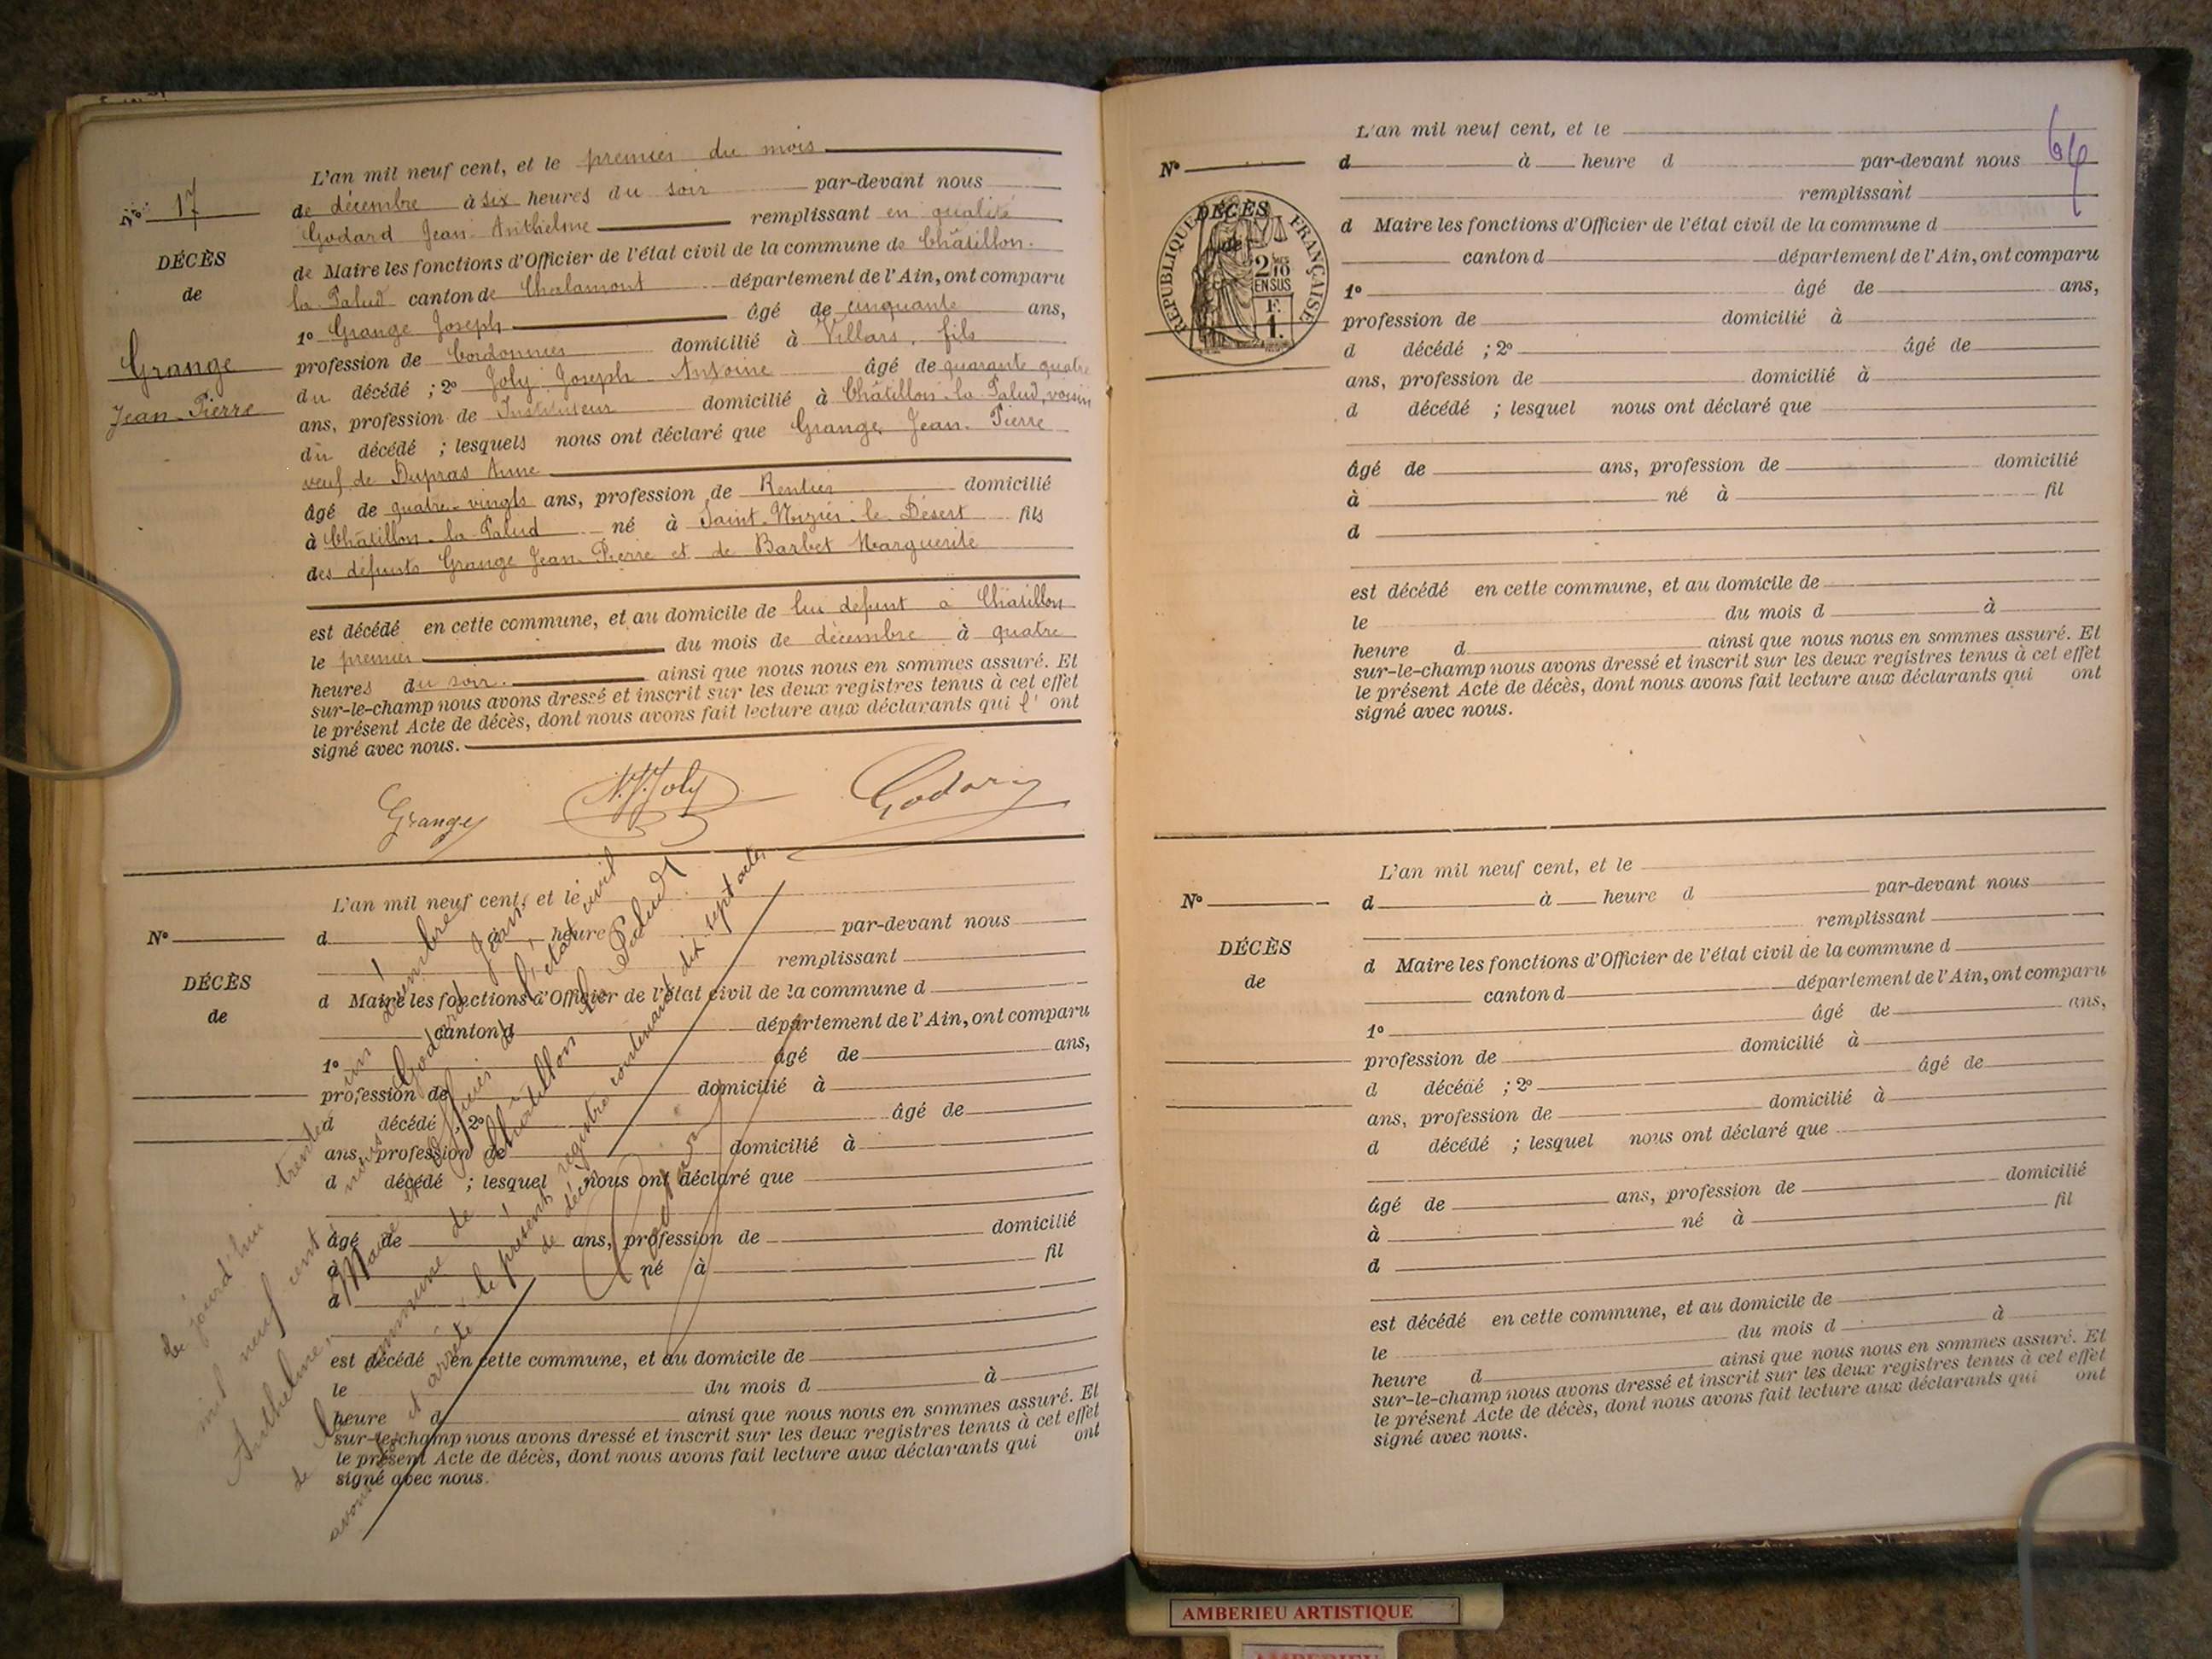 L'an mil neuf cent, et le premier du mois
N° 17
de décembre à six heures du soir par-devant nous
Godard Jean-Anthelme remplissant en qualité
DÉCÈS
de
Grange
Jean-Pierre
de Maire les fonctions d'Officier de l'état civil de la commune de Châtillon-
la-Palud canton de Chalamont département de l'Ain, ont comparu
1° Grange Joseph âgé de cinquante ans,
profession de Cordonnier domicilié à Villars, fils
du décédé ; 2° Joly Joseph Antoine âgé de quarante quatre
ans, profession de Instituteur domicilié à Châtillon-la-Palud, voisin
du décédé ; lesquels nous ont déclaré que Grange Jean-Pierre
veuf de Dupras Anne
âgé de quatre-vingts ans, profession de Rentier domicilié
à Châtillon-la-Palud né à Saint-Nizier-le-Désert fils
des défunts Grange Jean-Pierre et de Barbet Marguerite
est décédé en cette commune, et au domicile de lui défunt à Châtillon
le premier du mois de décembre à quatre
heures du soir. ainsi que nous nous en sommes assuré. Et
sur-le-champ nous avons dressé et inscrit sur les deux registres tenus à cet effet
le présent Acte de décès, dont nous avons fait lecture aux déclarants qui l' ont
signé avec nous.
Grange Joly Godard
L'an mil neuf cent, et le
N°
d à heure par-devant nous
remplissant
DÉCÈS
de
d Maire les fonctions d'Officier de l'état civil de la commune d
canton d département de l'Ain, ont comparu
1° âgé de ans,
profession de domicilié à
d décédé ; 2° âgé de
ans, profession de domicilié à
d décédé ; lesquel nous ont déclaré que
âgé de ans, profession de domicilié
à né à fil
d
est décédé en cette commune, et au domicile de
le du mois d à
heure d ainsi que nous nous en sommes assuré. Et
sur-le-champ nous avons dressé et inscrit sur les deux registres tenus à cet effet
le présent Acte de décès, dont nous avons fait lecture aux déclarants qui ont
signé avec nous.
Ce jourd'hui trente un décembre
mil neuf cent nous Godard Jean
Anthelme, Maire et officier de l'état civil
de la commune de Châtillon la Palud
avons et arrêté le présent registre contenant dix sept actes
de décès
Godard
64
L'an mil neuf cent, et le
N°
d à heure d par-devant nous
remplissant
DÉCÈS
de
RÉPUBLIQUE FRANÇAISE
2/10 EN SUS
F.
1.
d Maire les fonctions d'Officier de l'état civil de la commune d
canton d département de l'Ain, ont comparu
1° âgé de ans,
profession de domicilié à
d décédé ; 2° âgé de
ans, profession de domicilié à
d décédé ; lesquel nous ont déclaré que
âgé de ans, profession de domicilié
à né à fil
d
est décédé en cette commune, et au domicile de
le du mois d à
heure d ainsi que nous nous en sommes assuré. Et
sur-le-champ nous avons dressé et inscrit sur les deux registres tenus à cet effet
le présent Acte de décès, dont nous avons fait lecture aux déclarants qui ont
signé avec nous.
L'an mil neuf cent, et le
N°
d à heure d par-devant nous
remplissant
DÉCÈS
de
d Maire les fonctions d'Officier de l'état civil de la commune d
canton d département de l'Ain, ont comparu
1° âgé de ans,
profession de domicilié à
d décédé ; 2° âgé de
ans, profession de domicilié à
d décédé ; lesquel nous ont déclaré que
âgé de ans, profession de domicilié
à né à fil
d
est décédé en cette commune, et au domicile de
le du mois d à
heure d ainsi que nous nous en sommes assuré. Et
sur-le-champ nous avons dressé et inscrit sur les deux registres tenus à cet effet
le présent Acte de décès, dont nous avons fait lecture aux déclarants qui ont
signé avec nous.
AMBERIEU ARTISTIQUE
AMBERIEU